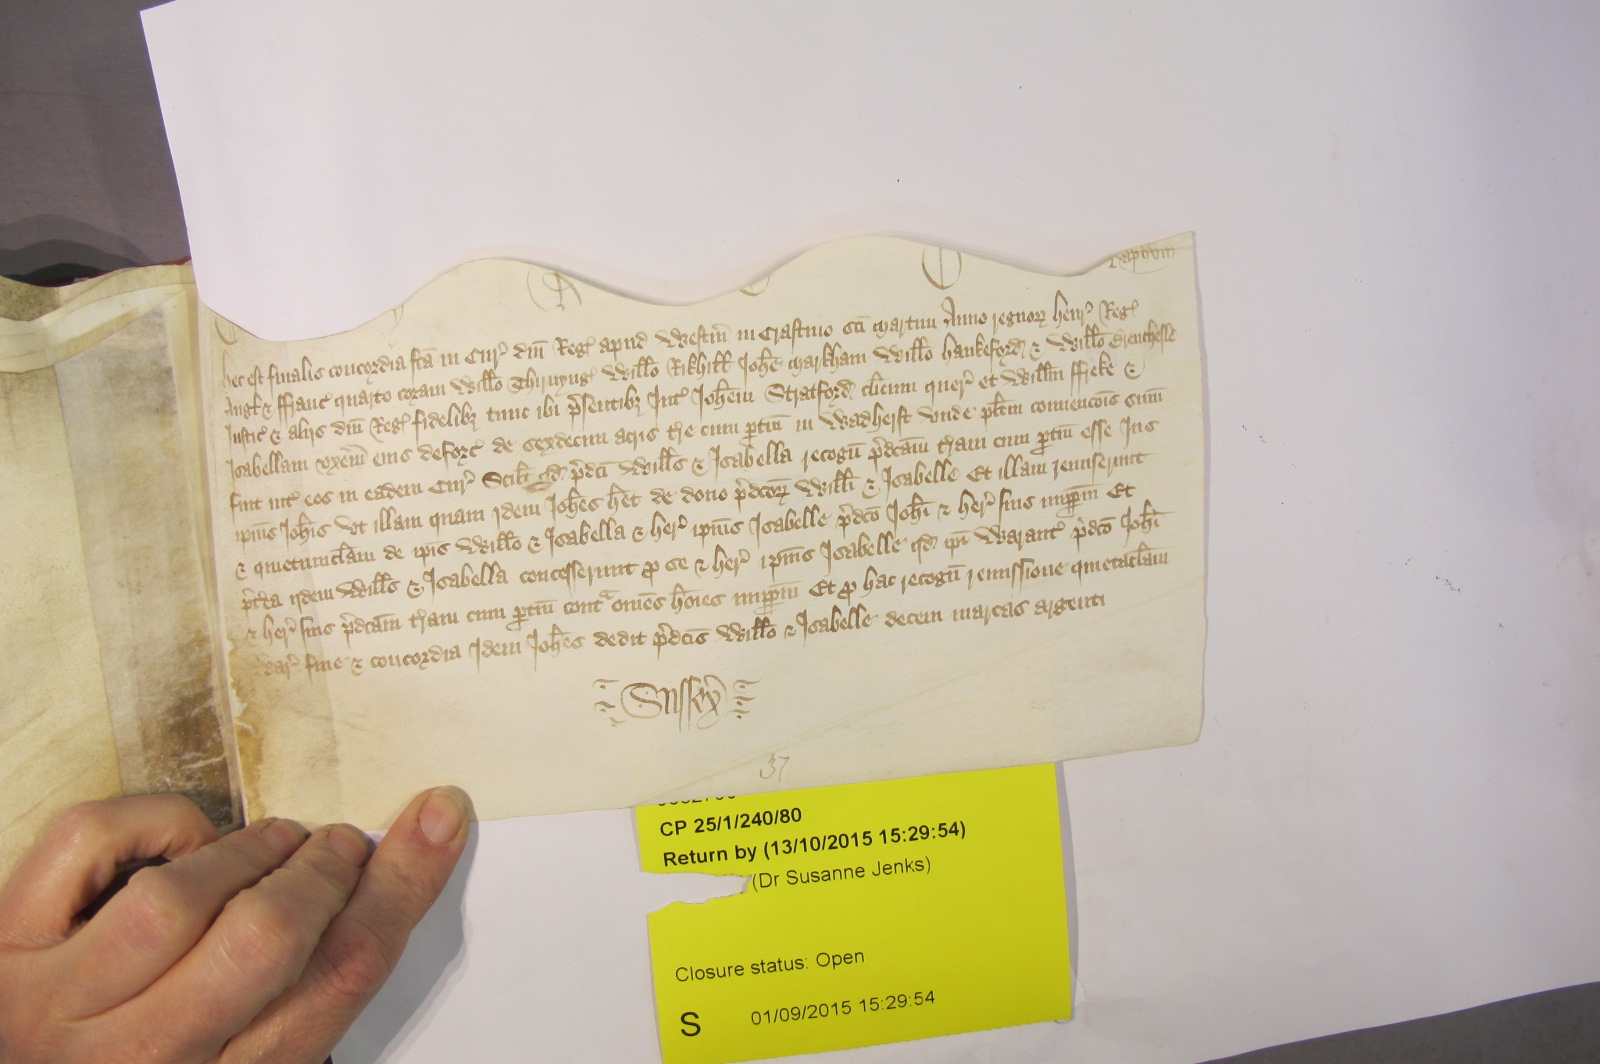 hec est finalis concordia fc̄a in Cur̉ dn̄i Reg̉ apud Westm̄ in Crastino sc̄i Martini Anno regnoꝝ henr̉ Reg̉
Angl̉ & ffranc̉ quarto coram Willo Thirnyng̉ Willo Rikhill Johē Markham Willo hankeford & Willo Brenchesle
Justic̉ & aliis dn̄i Reg̉ fidelibꝫ tunc ibi p̄sentibꝫ Int̉ Johem̄ Stratford cl̄icum quer̉ et Willm̄ ffreke &
Isabellam vxem̄ eius deforc̉ de sexdecim acris tr̄e cum ptin̄ in Wadherst vnde pl̄itm conuencōis sum̄
fuit int̉ eos in eadem Cur̉ Scil̄t qd p̄dc̄i Wills & Isabella recogn̄ p̄dc̄am tr̄am cum ptin̄ esse Ius
ipīus Joh̄is vt illam quam idem Joh̄es h̄et de dono p̄dc̄oꝝ Willi & Isabelle Et illam remiserunt
& quietumclam̄ de ip̄is Willo & Isabella & her̉ ipīus Isabelle p̄dc̄o Joh̄i & her̉ suis imppm̄ Et
p̄t̄ea ijdem Wills & Isabella concesserunt p se & her̉ ipīus Isabelle qd ip̄i Warant̉ p̄dc̄o Joh̄i
& her̉ suis p̄dc̄am tr̄am cum ptin̄ contᵃ om̄es hōies imppm̄ Et p hac recogn̄ remissione quietaclam̄
War̉ fine & concordia Idem Joh̄es dedit p̄dc̄is Willo & Isabelle decem marcas argenti
Sussex̉
37
CP 25/1/240/80
Return by (13/10/2015 15:29:54)
(Dr Susanne Jenks)
Closure status: Open
S 01/09/2015 15:29:54